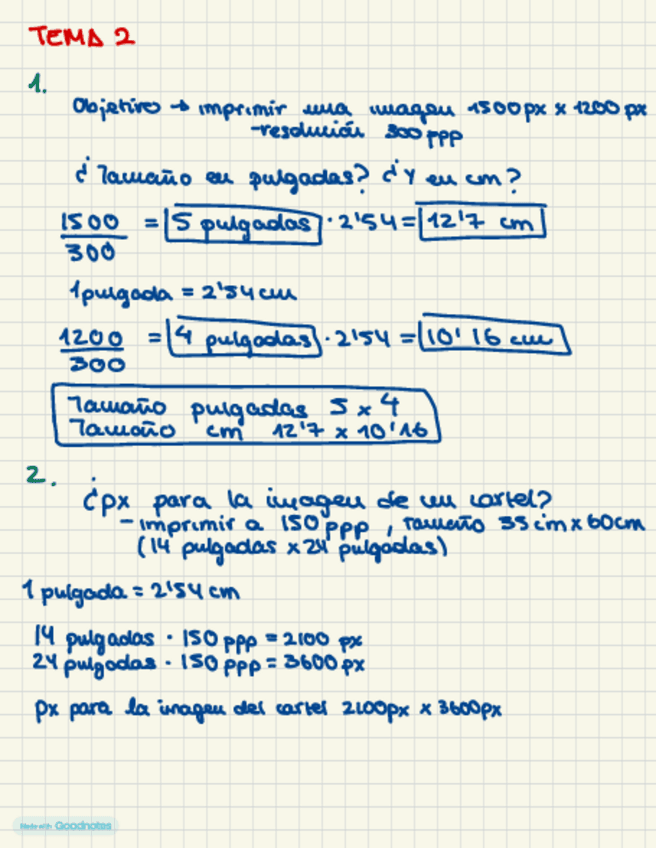 TEMA 2
1.
Objetivo → imprimir una imagen 1500px x 1200px
-resolución 300ppp
¿Tamaño en pulgadas? ¿Y en cm?
1500/300 = 5 pulgadas · 2'54 = 12'7 cm
1 pulgada = 2'54 cm
1200/300 = 4 pulgadas · 2'54 = 10'16 cm
Tamaño pulgadas 5 x 4
Tamaño cm 12'7 x 10'16
2.
¿px para la imagen de un cartel?
- imprimir a 150 ppp, tamaño 35cm x 60cm
(14 pulgadas x 24 pulgadas)
1 pulgada = 2'54 cm
14 pulgadas · 150 ppp = 2100 px
24 pulgadas · 150 ppp = 3600 px
px para la imagen del cartel 2100px x 3600px
Made with Goodnotes